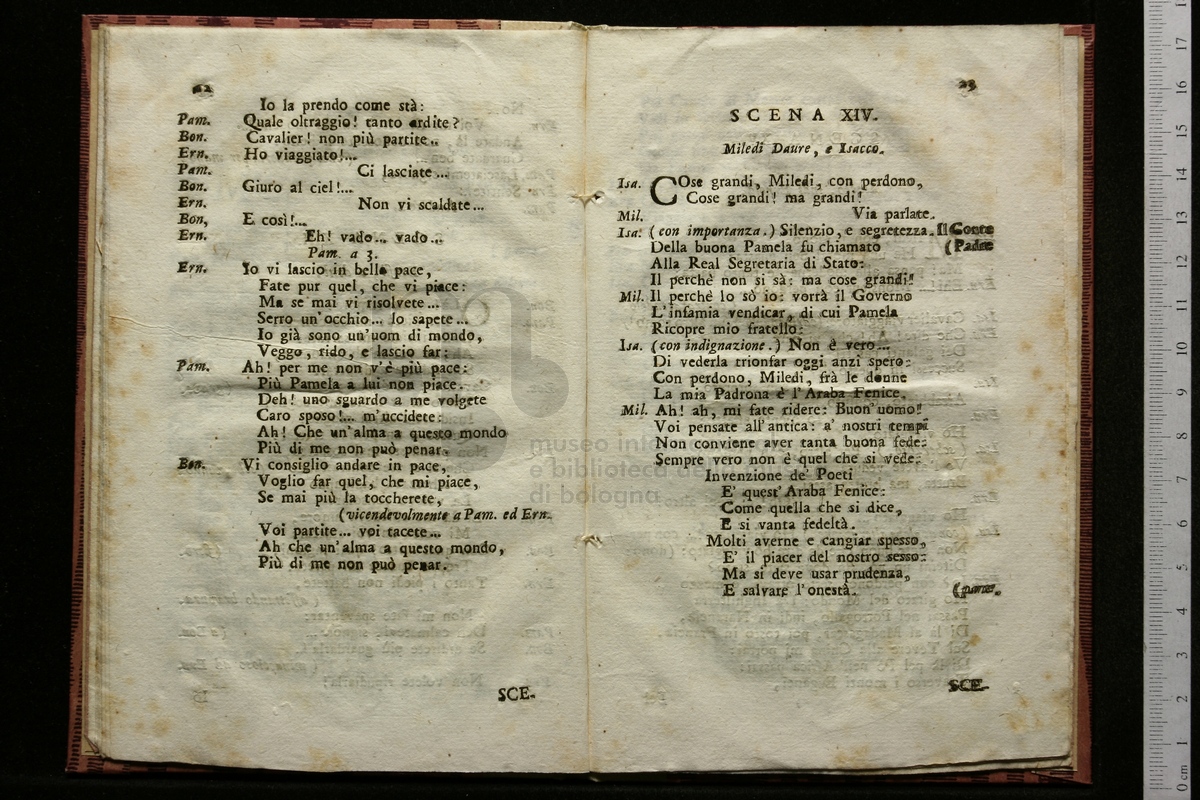 22
Io la prendo come stà:
Pam. Quale oltraggio! tanto ardite?
Bon. Cavalier! non più partite..
Ern. Ho viaggiato!...
Pam. Ci lasciate ...
Bon. Giuro al ciel!...
Ern. Non vi scaldate ...
Bon, E così!...
Ern. Eh! vado... vado...
Pam. a 3.
Ern. Io vi lascio in bella pace,
Fate pur quel, che vi piace:
Ma se mai vi risolvete ...
Serro un'occhio... Io sapete ...
Io già sono un'uom di mondo,
Veggo, rido, e lascio far:
Pam. Ah! per me non v'è più pace:
Più Pamela a lui non piace.
Deh! uno sguardo a me volgete
Caro sposo!... m'uccidete:
Ah! Che un'alma a questo mondo
Più di me non può penar.
Bon. Vi consiglio andare in pace,
Voglio far quel, che mi piace,
Se mai più la toccherete,
(vicendevolmente a Pam. ed Ern.
Voi partite... voi tacete...
Ah che un'alma a questo mondo,
Più di me non può penar.
SCE-
23
SCENA XIV.
Miledi Daure, e Isacco.
Isa. COse grandi, Miledi, con perdono,
Cose grandi! ma grandi!
Mil. Via parlate.
Isa: (con importanza.) Silenzio, e segretezza. Il Conte
Della buona Pamela fu chiamato (Padre
Alla Real Segretaria di Stato:
Il perchè non si sà: ma cose grandi!
Mil. Il perchè lo sò io: vorrà il Governo
L'infamia vendicar, di cui Pamela
Ricopre mio fratello:
Isa. (con indignazione.) Non è vero...
Di vederla trionfar oggi anzi spero:
Con perdono, Miledi, frà le donne
La mia Padrona è l'Araba Fenice.
Mil. Ah! ah, mi fate ridere: Buon'uomo!
Voi pensate all'antica: a' nostri tempi
Non conviene aver tanta buona fede:
Sempre vero non è quel che si vede:
Invenzione de' Poeti
E' quest'Araba Fenice:
Come quella che si dice,
E si vanta fedeltà.
Molti averne e cangiar spesso,
E' il piacer del nostro sesso:
Ma si deve usar prudenza,
E salvare l'onestà. (parte.
SCE-
museo
e biblioteca de
di bologna